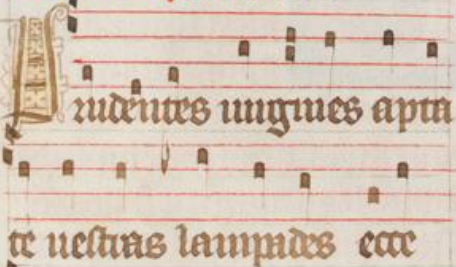 Prudentes uirgines apta
te uestras lampades ecce